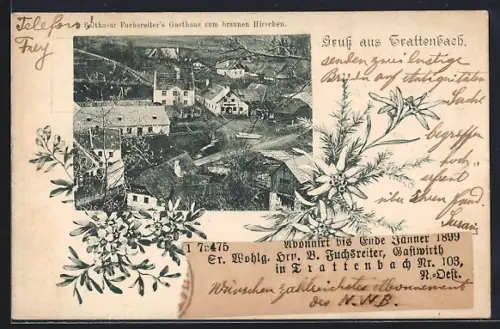 Telefon!
Frey
Balthasar Fuchsreiter's Gasthaus zum braunen Hirschen.
Gruß aus Trattenbach.
senden zwei lustige
auf
Suche
begriffen
noch
erfreut
über Ihren
1 7a475
Abonnirt bis Ende Jänner 1899
Sr. Wohlg. Hrn. B. Fuchsreiter, Gastwirth
in Trattenbach Nr. 103,
N.-Oest.
Wünschen zahlreichstes Abonnement
des N.W.B.